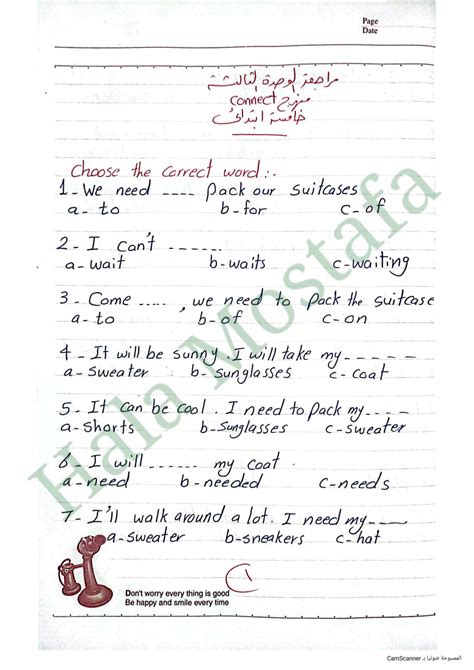 Page
Date
مراجعة الوحدة الثالثة
منهج connect
خامسة ابتدائى
Choose the correct word:.
1- We need ---- pack our suitcases
a- to b- for c- of
2- I can't ------
a- wait b- waits c- waiting
3- Come ....., we need to pack the suitcase
a- to b- of c- on
4- It will be sunny. I will take my -----
a- sweater b- sunglasses c- coat
5- It can be cool. I need to pack my ----
a- shorts b- sunglasses c- sweater
6- I will ------ my coat.
a- need b- needed c- needs
7- I'll walk around a lot. I need my ----
a- sweater b- sneakers c- hat
Don't worry every thing is good
Be happy and smile every time
١
Hala Mostafa
الممسوحة ضوئيا بـ CamScanner